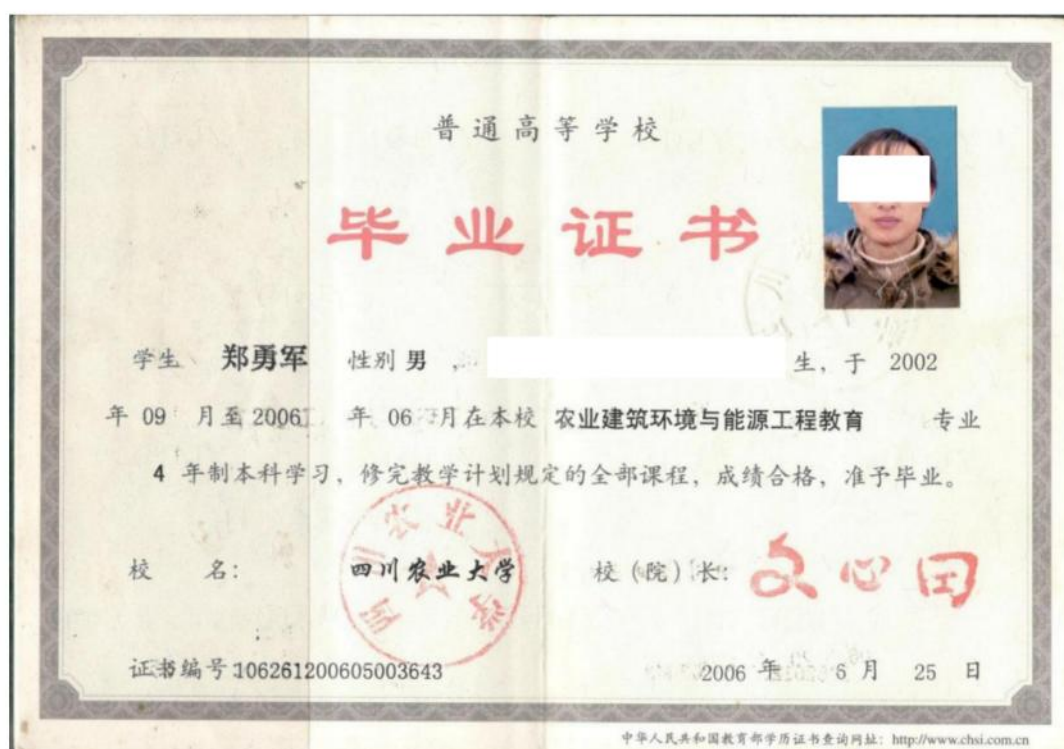 普通高等学校
毕业证书
学生 郑勇军 性别 男 , 生，于 2002
年 09 月至 2006 年 06 月在本校 农业建筑环境与能源工程教育 专业
4 年制本科学习，修完教学计划规定的全部课程，成绩合格，准予毕业。
四川农业大学
校 名： 四川农业大学 校（院）长： 文心田
证书编号 106261200605003643 2006 年 6 月 25 日
中华人民共和国教育部学历证书查询网址：http://www.chsi.com.cn